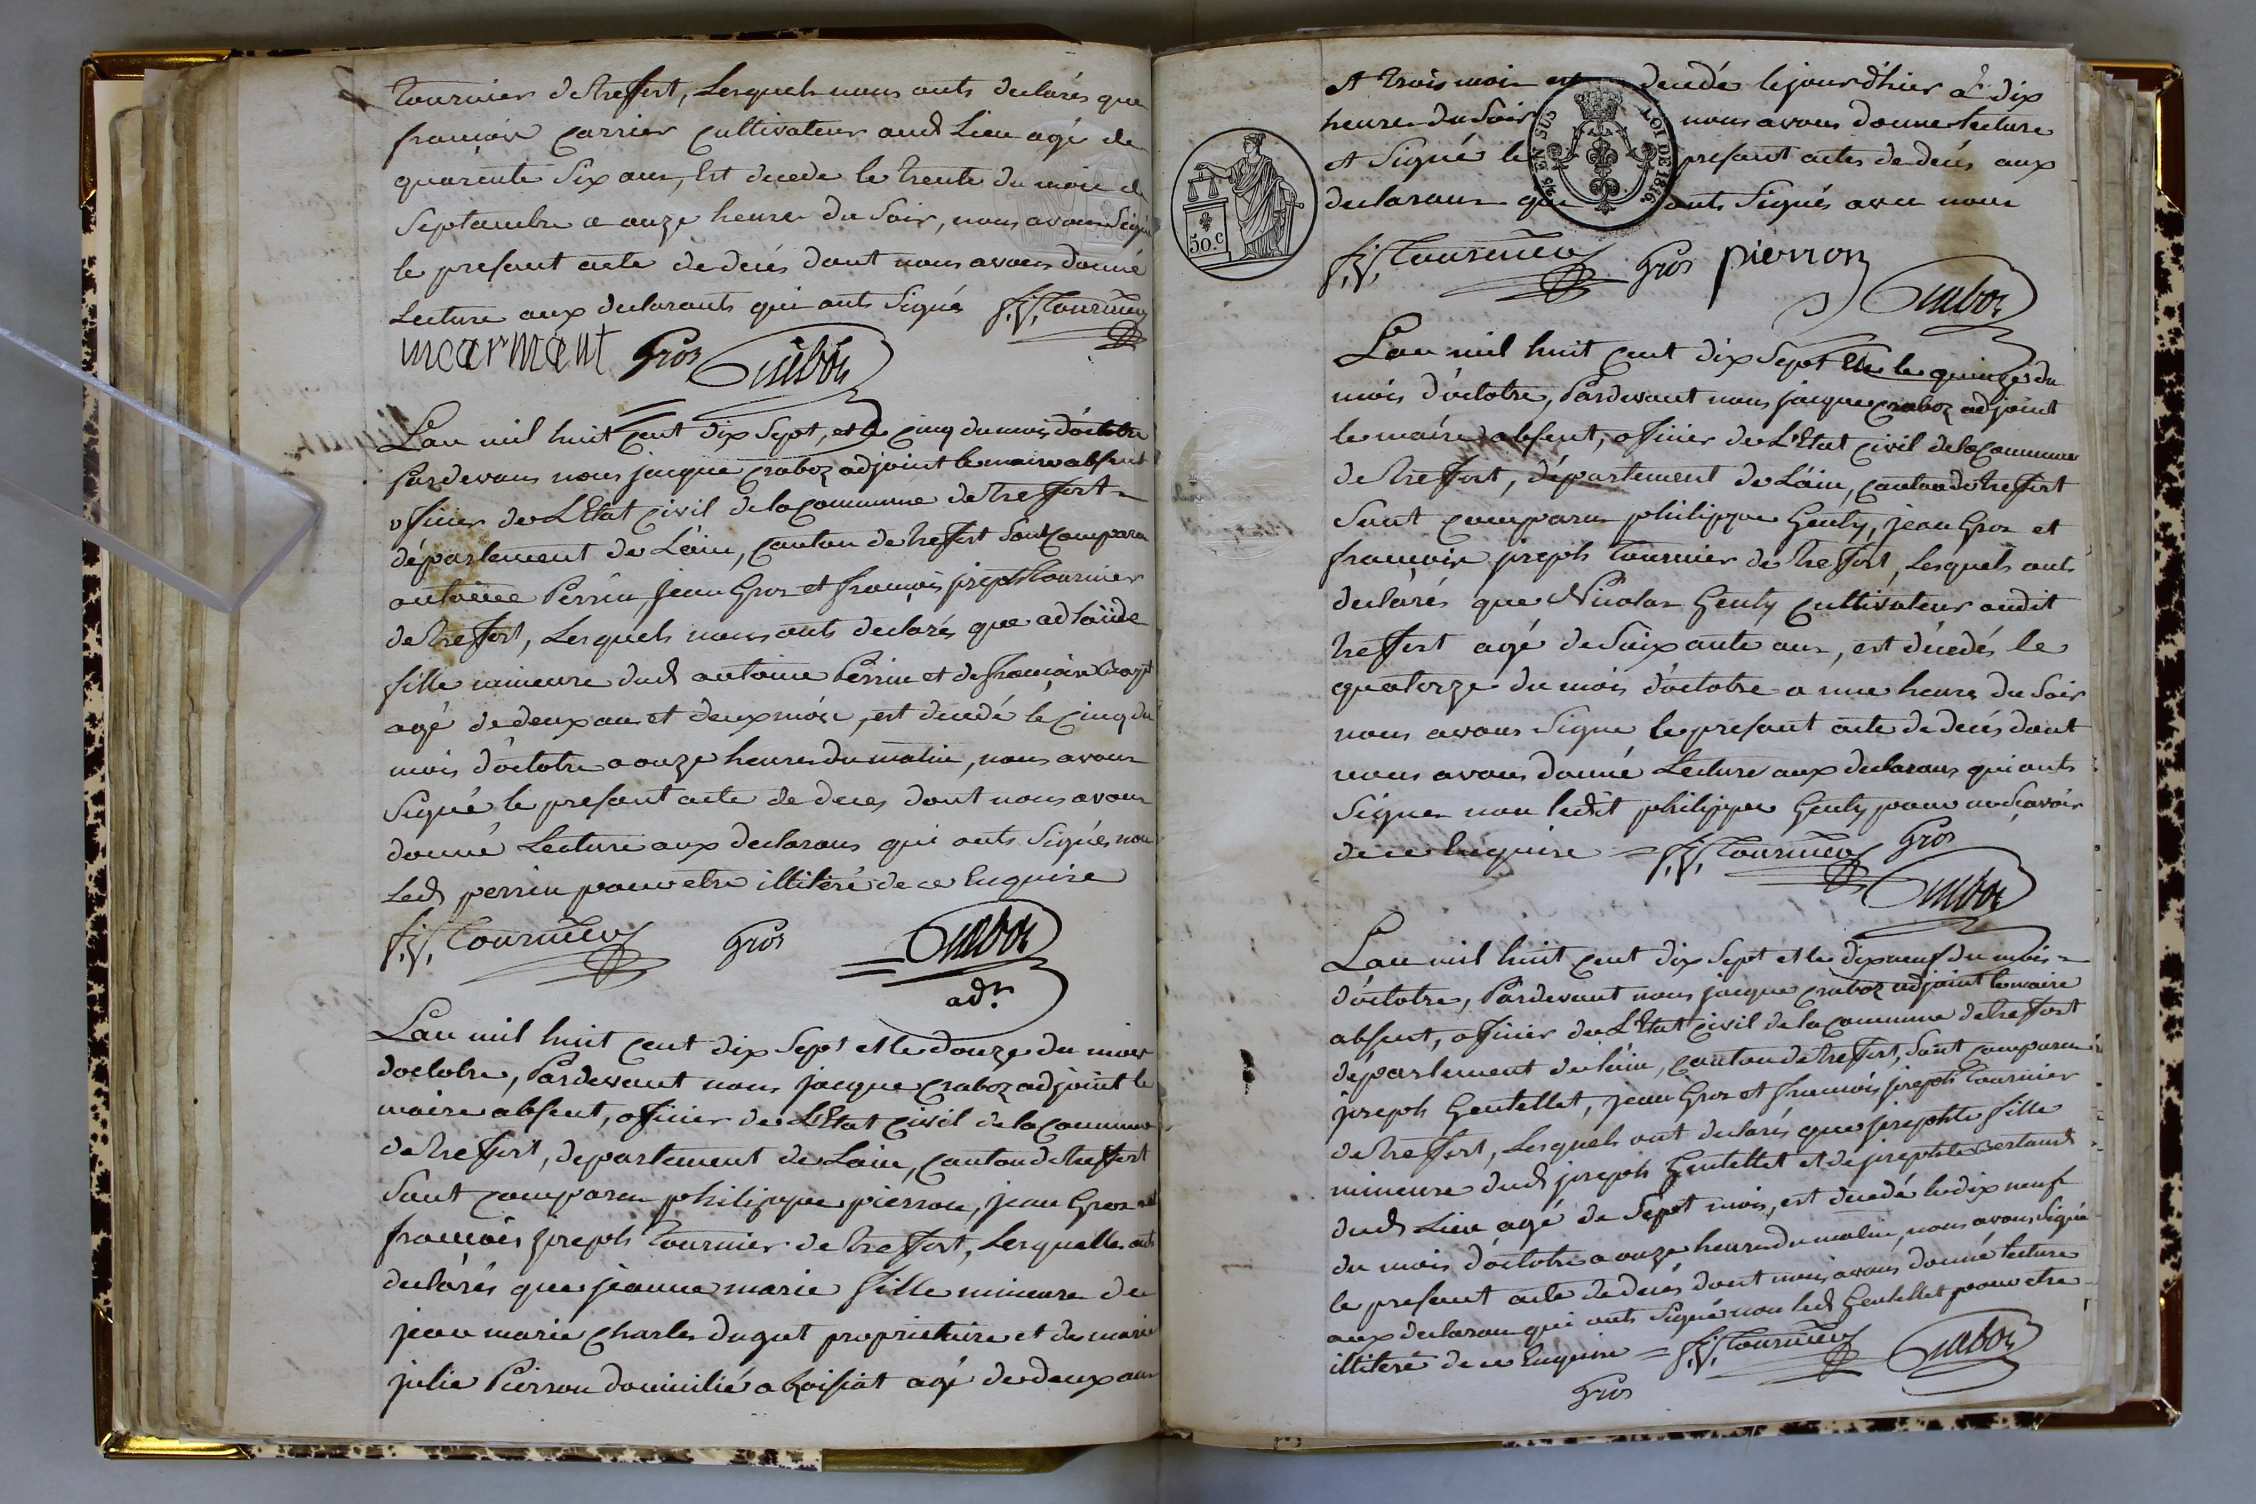 Tournier de treffort, Lesquels nous onts declarés que
françois carrier cultivateur aud Lieu agé de
quarente Six ans, Est decede le trente du mois de
Septembre a onze heures du Soir, nous avons Signé
le presant acte de decés dont nous avons donné
Lecture aux declarants qui onts Signés f.j. Tournier
mcarmant Gros Craboz
Lan mil huit cent dix Sept, et le cinq du mois d'octobre
Pardevans nous jacque craboz adjoint le maire absent
officier de L'Etat civil de la commune de treffort
département de Láin, canton de treffort Sont comparu
antoine Perrin, jean Gros et françois joseph tournier
de treffort, Lesquels nous onts declarés que adlaïde
fille mineure dud antoine Perrin et de françoise
agé de deux ans et deux mois, est decedé le cinq du
mois d'octobre a onze heures du matin, nous avons
Signé le presant acte de deces dont nous avons
donné Lecture aux declarans qui onts Signés non
Led perrin pour etre illiteré de ce Enquire
f.j. Tournier Gros Craboz
adt
Lan mil huit cent dix Sept et le douze du mois
doctobre, Pardevant nous jacque craboz adjoint le
maire absent, officier de L'Etat civil de la commune
de treffort, departement de Lain, canton de treffort
Sont comparu philippe pierron, jean Gros et
françois joseph tournier de treffort, Lesquelles onts
declarés que jeanne marie fille mineure de
jean marie charles dugut proprietaire et de marie
julie Pierron domicilié a Loisiat agé de deux ans
et trois mois est decedé le jour d'hier a dix
heures du Soir nous avons donne lecture
et Signé le presant actes de decés aux
declarans qui onts Signés avec nous
2/5 EN SUS LOI DE 1816.
50.c
f.j. Tournier Gros pierron
Craboz
Lan mil huit cent dix Sept et le quinze du
mois d'octobre, Pardevant nous jacque craboz adjoint
le maire absent, officier de L'Etat civil de la commune
de treffort, département de Láin, canton de treffort
Sont comparu philippe Genty, jean Gros et
françois joseph tournier de treffort, Lesquels onts
declarés que Nicolas Genty cultivateur audit
treffort agé de Soixante ans, est décedés le
quatorze du mois d'octobre a une heure du Soir
nous avons Signe le presant acte de decés dont
nous avons donné Lecture aux declarans qui onts
Signer non ledit philippe Genty pour ne Scavoir
de ce Enquire = f.j. Tournier Gros
Craboz
Lan mil huit cent dix Sept et le dix neuf du mois
d'octobre, Pardevant nous jacque craboz adjoint le maire
absent, officier de L'Etat civil de la commune de treffort
département de láin, canton de treffort, Sont comparu
joseph Gentellet, jean Gros et françois joseph tournier
de treffort, Lesquels ont declarés que josephte fille
mineure dud joseph Gentellet et de josephte Bertand
dud Lieu agé de Sept mois, est decedé le dix neuf
du mois d'octobre a onze heures du matin, nous avons Signé
le presant acte de decés dont nous avons donné lecture
aux declarans qui onts Signé non led Gentellet pour etre
illiteré de ce Enquire = f.j. Tournier Craboz
Gros